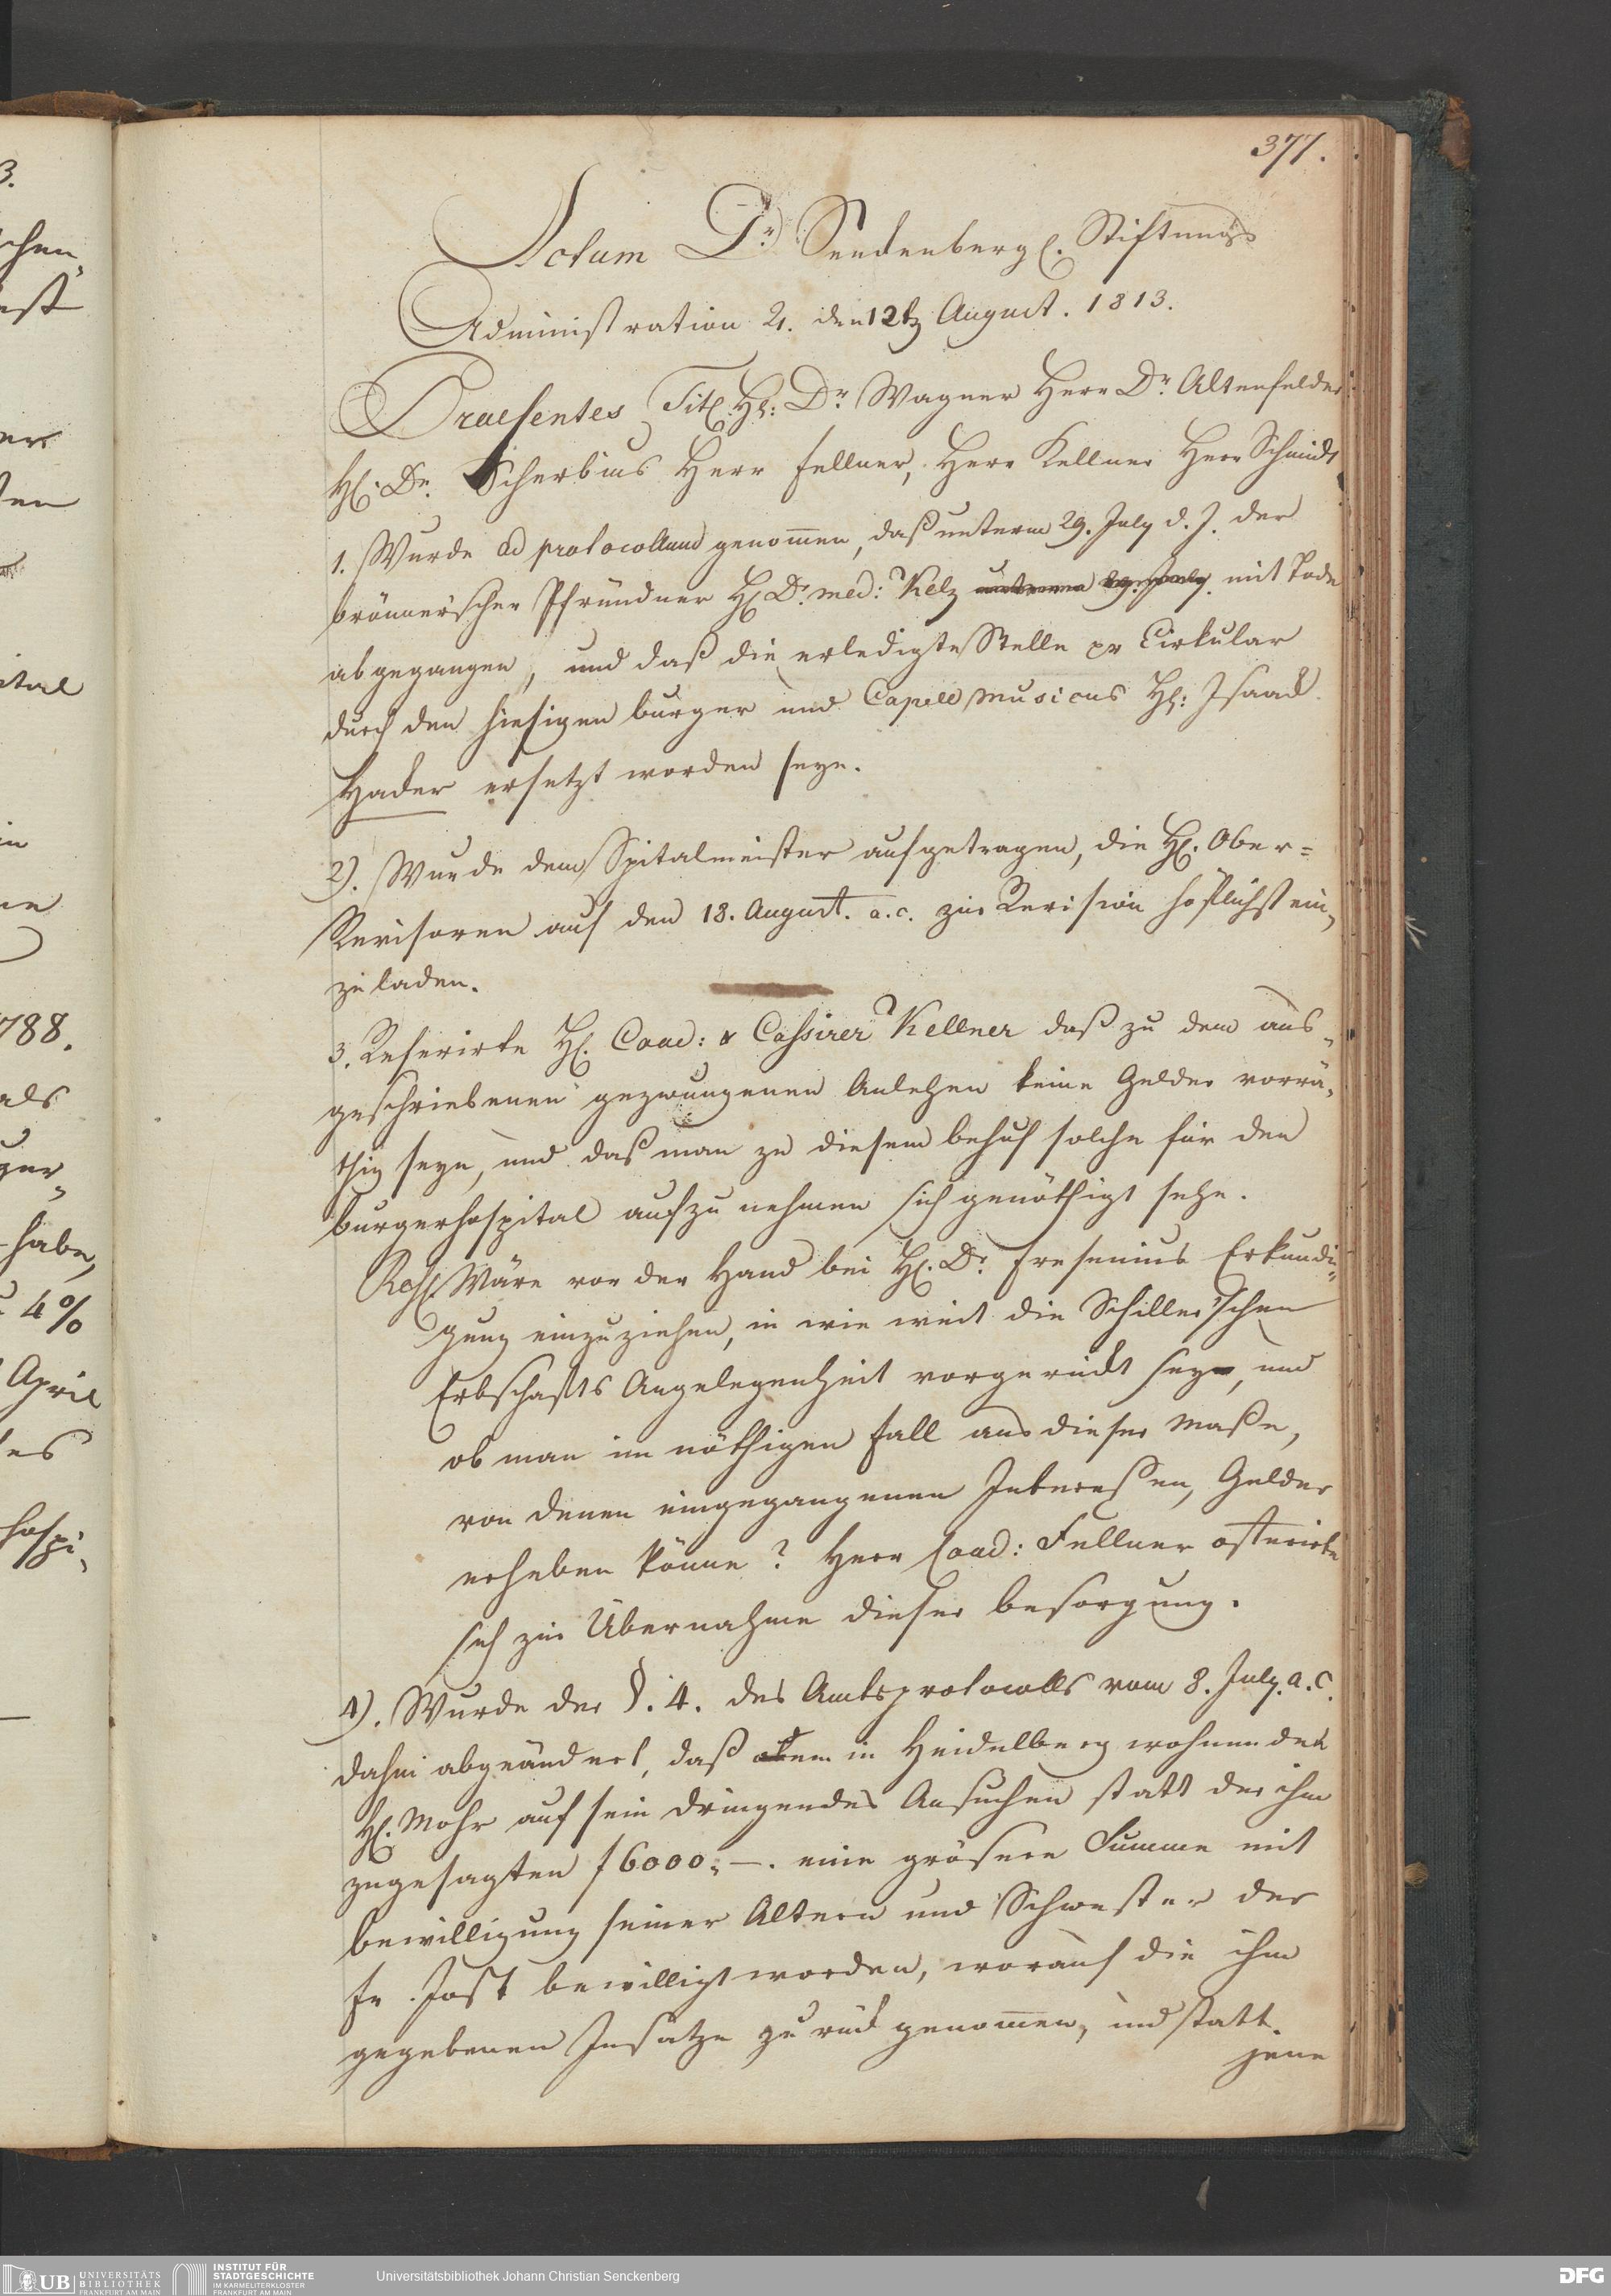 377.
Actum Dr. Senckenberg. Stiftungs
Administration 21. den 12t August. 1813.
Praesentes Tit. H: Dr. Wagner Herr Dr. Altenfelder
H: Dr. Scherbius Herr Fellner, Herr Kellner Herr Schmidt
1. Wurde ad protocollum genom̅en, daß unterm 29. July d. J. der
brönnerscher Pfründner H. Dr. med: Kelz unterm 29. July. mit Tode
abgegangen, und daß die erledigte Stelle pr Cirkular
durch den hiesigen burger und Capell Musicus H: Isaack
Hader ersetzt worden seye.
2). Wurde dem Spitalmeister aufgetragen, die H. Ober=
Revisoren auf den 18. August. a.c. zur Revision höflichst ein„
zu laden.
3. Referirte H. Coad: & Cassirer Kellner daß zu dem aus„
geschriebenen gezwungenen Anlehen keine Gelder vorrä„
thig seye, und daß man zu diesem behuf solche für den
burgerhospital aufzunehmen sich genöthigt sehe.
Wäre vor der Hand bei H. Dr. Fresenius Erkundi„
gung einzuziehen, in wie weit die Schiller'schen
Erbschafts Angelegenheit vorgerückt sey, und
ob man im nöthigen Fall aus dieser Maße,
von denen eingegangenen Interessen, Gelder
erheben könne? Herr Coad: Fellner offerirte
sich zur Übernahme dieser besorgung.
4). Wurde der §. 4. des Amtsprotocolls vom 8. July. a. c.
dahin abgeändert, daß dem in Heidelberg wohnenden
H. Mohr auf sein dringendes Ansuchen statt der ihm
zugesagten f 6000„ —. eine grösere Summe mit
bewilligung seiner Altern und Schwester der
Fr. Jost bewilligt worden, worauf die ihm
gegebenen Insätze zurück genom̅en, und statt
jene
3.
788.
als
habe,
4 %
April
hospi„
UB UNIVERSITÄTS
BIBLIOTHEK
FRANKFURT AM MAIN
INSTITUT FÜR
STADTGESCHICHTE
IM KARMELITERKLOSTER
FRANKFURT AM MAIN
Universitätsbibliothek Johann Christian Senckenberg
DFG